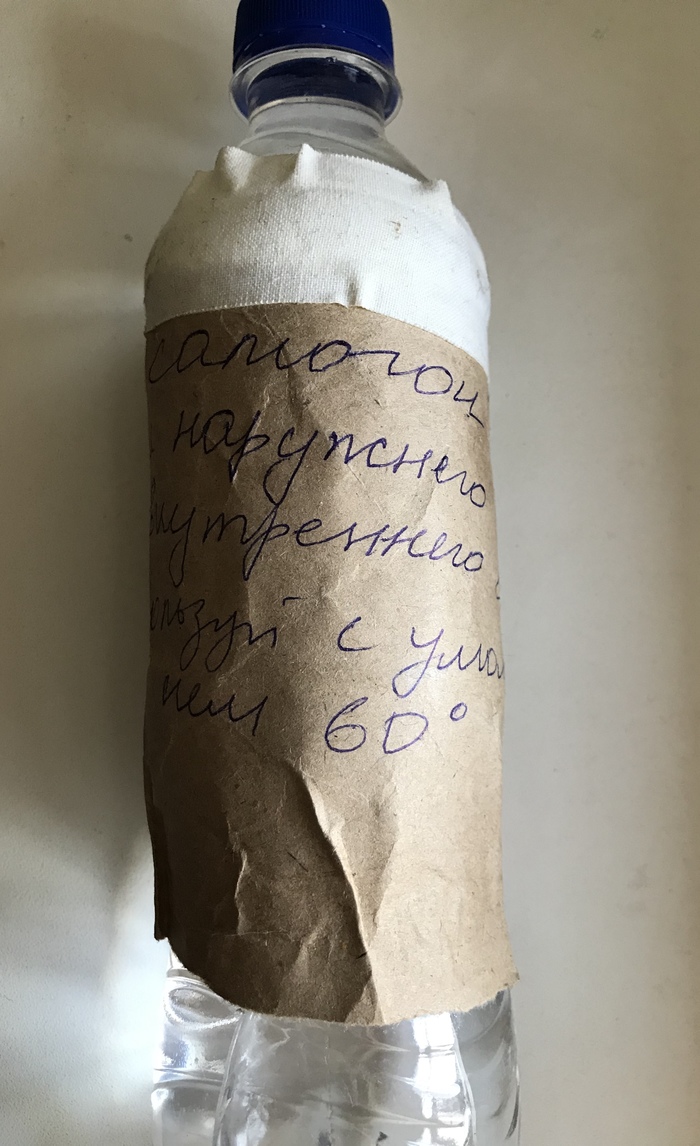 самогон
наружнего
внутреннего
с умом
нем 60°